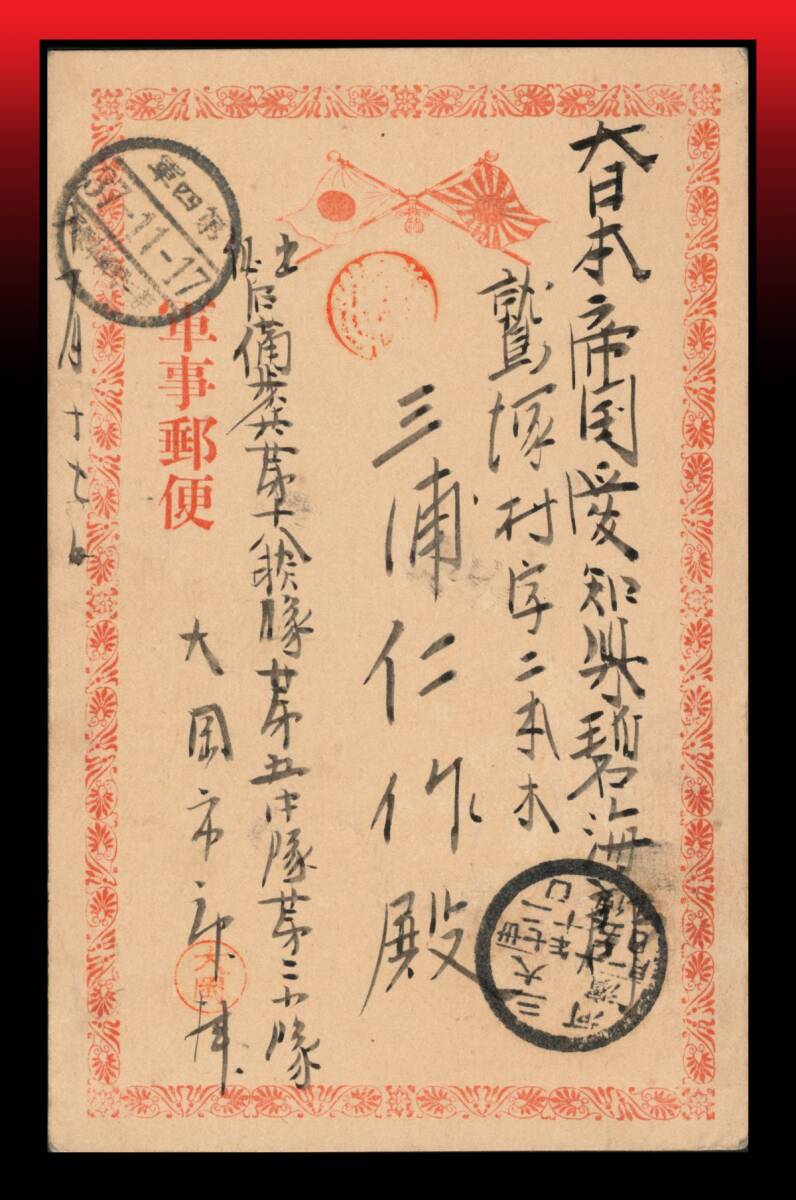 大日本帝国愛知県碧海郡
鷲塚村字二本木
三浦仁作殿
出征后備歩兵第十八聯隊第五中隊第二小隊
大岡市
大岡
軍事郵便
十一月十七日
第四軍
37-11-17
三河
大濱